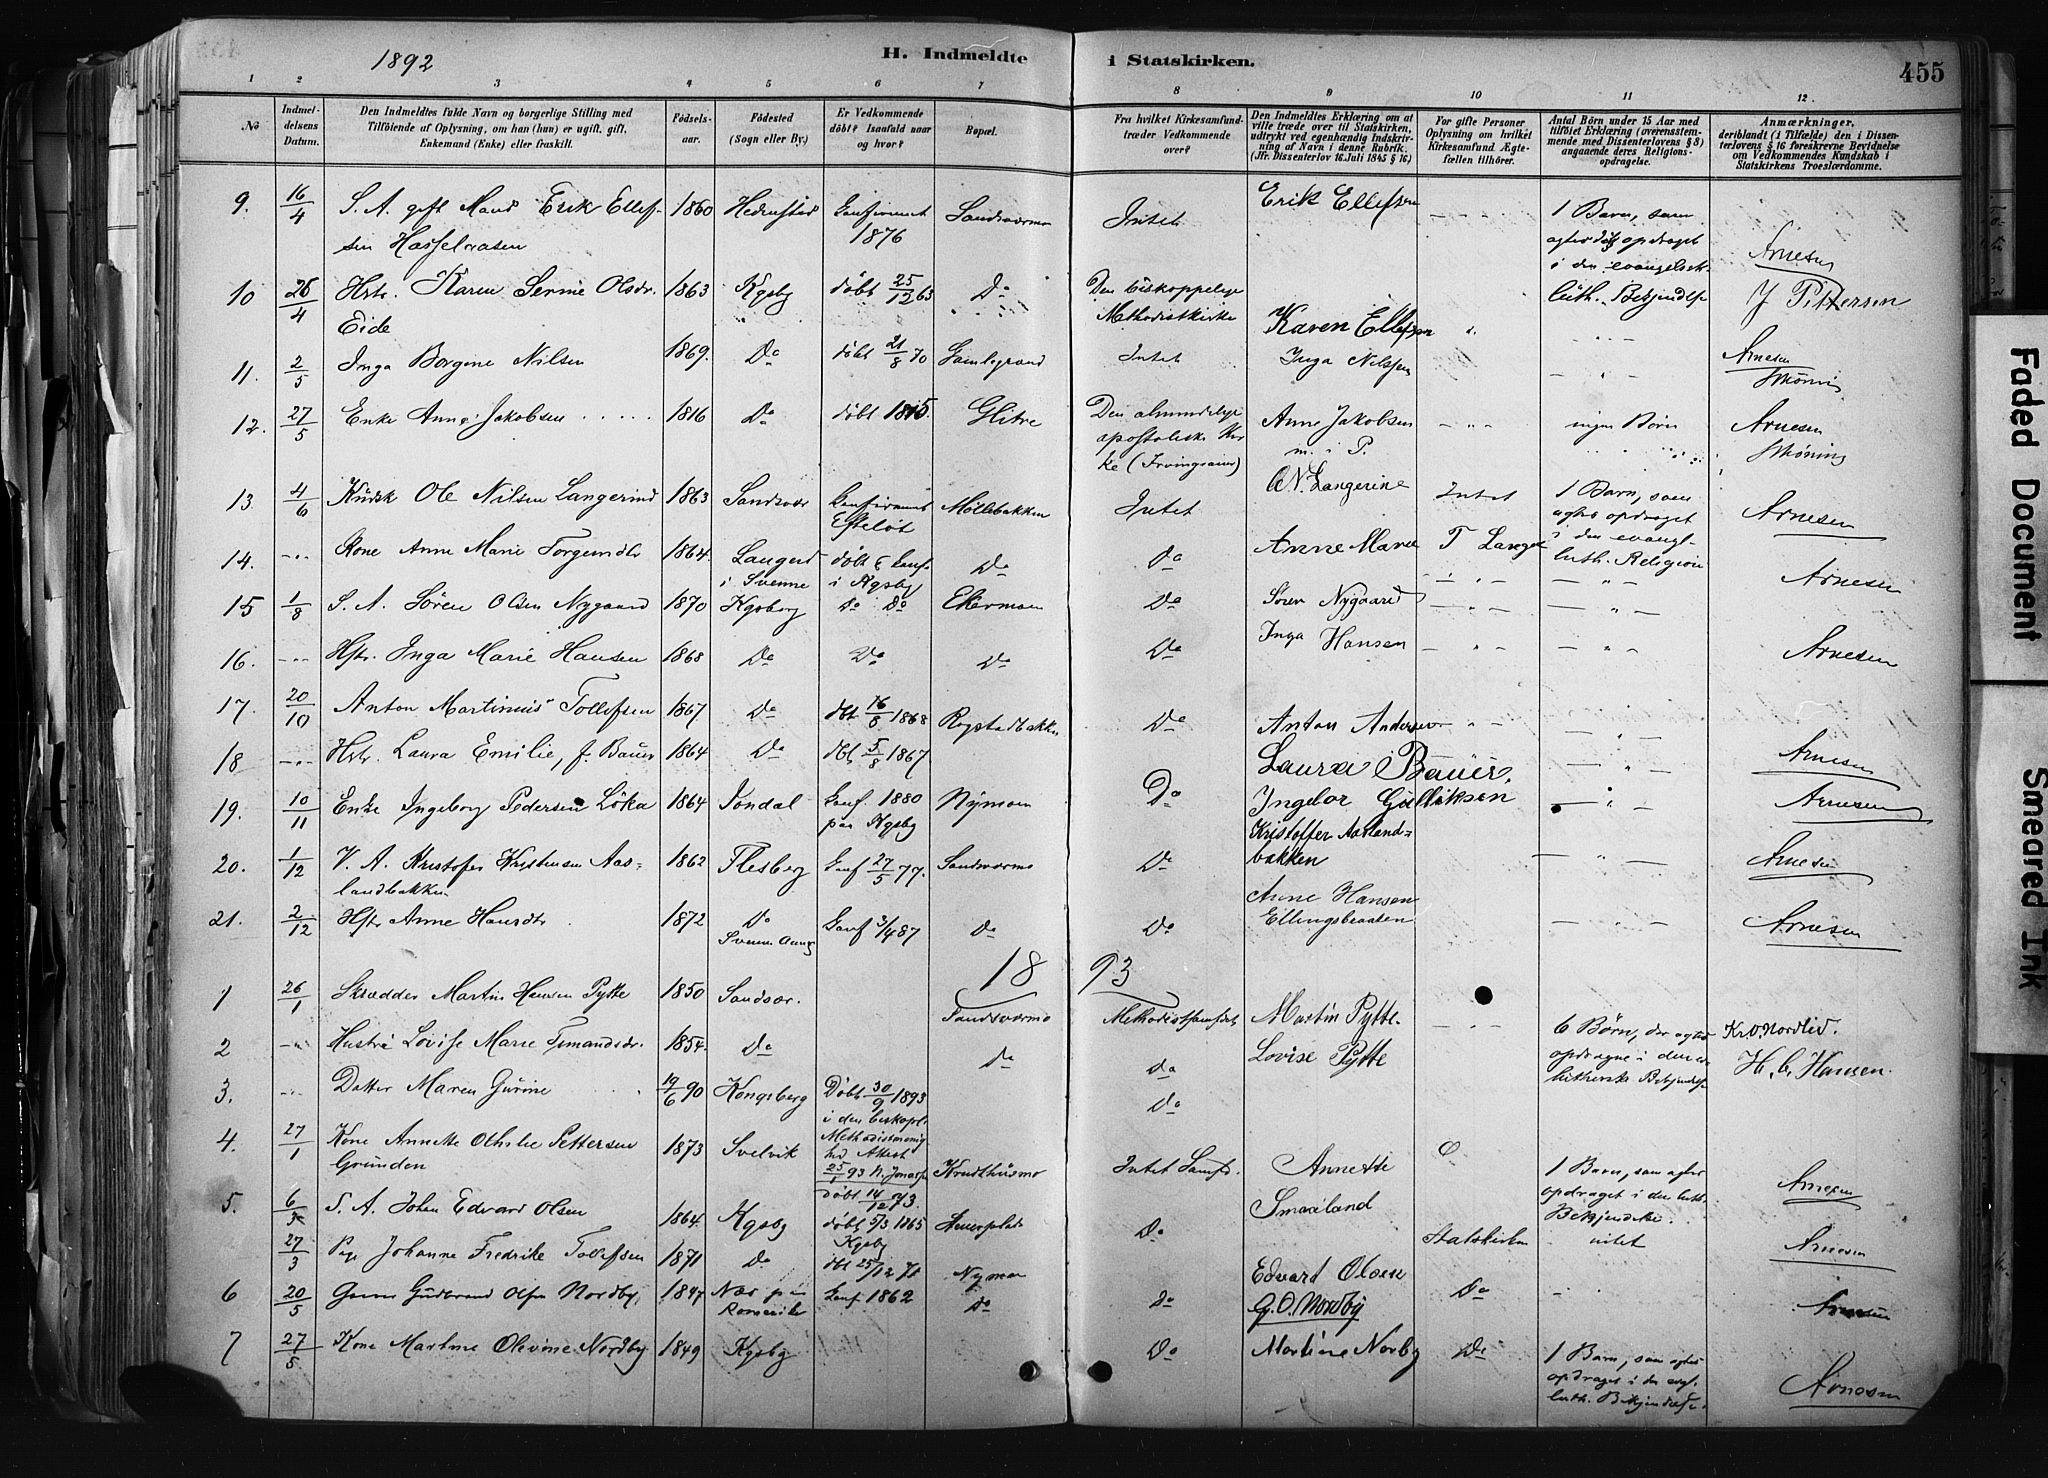 1892
H. Indmeldte i Statskirken.
455
1 2 3 4 5 6 7 8 9 10 11 12
No
Indmel-
delsens
Datum.
Den Indmeldtes fulde Navn og borgerlige Stilling med
Tilföiende af Oplysning, om han (hun) er ugift, gift,
Enkemand (Enke) eller fraskilt.
Fødsels-
aar.
Födested
(Sogn eller By.)
Er Vedkommende
döbt? Isaafald naar
og hvor?
Bopæl.
Fra hvilket Kirkesamfund
træder Vedkommende
over?
Den Indmeldtes Erklæring om at
ville træde over til Statskirken,
udtrykt ved egenhændig Indskriv-
ning af Navn i denne Rubrik.
(Jfr. Dissenterlov 16 Juli 1845 § 16)
For gifte Personer
Oplysning om hvilket
Kirkesamfund Ægte-
fællen tilhörer.
Antal Börn under 15 Aar med
tilföiet Erklæring (overensstem-
mende med Dissenterlovens § 8)
angaaende deres Religions-
opdragelse.
Anmærkninger,
deriblandt (i Tilfælde) den i Dissen-
terlovens § 16 foreskrevne Bevidnelse
om Vedkommendes Kundskab i
Statskirkens Troeslærdomme.
9. 16/4 S. A. gift Mand Erik Ellef- 1860 Hedenstad Konfirmeret Sandsværmo Intet Erik Ellefsen 1 Barn, som
sen Hasselaasen 1876
agtes opdraget
i den evangelisk
luth. Bekjendelse
Arnesen
10 26/4 Hstr. Karen Serine Olsdr. 1863 Kgsbg døbt 25/12 63 Do Den biskoppelige
Eide Methodistkirke Karen Ellefsen J Pettersen
11. 2/5 Inga Borgine Nilsen 1869. Do døbt 21/8 70 Gamlegrend Intet Inga Nilssen Arnesen
12. 27/5 Enke Anne Jakobsen 1816 Do døbt 1815. Glitre Den almindelige Anne Jakobsen ingen Børn Arnesen
apostoliske Kir m. i P.
ke (Irvingianer)
13. 4/6 Ole Nilsen Langerind 1863 Sandsvær Konfirmeret Møllebakken Intet O.N. Langerine Intet 1 Barn, som Arnesen
Efteløt agtes opdraget
i den evangl.
luth. Religion
14. Kone Anne Marie Torgrimsdtr 1864. døbt & konf. Do Do Anne Marie T Lange
i Svenne i Kgsbg Arnesen
15 1/8 S. A. Sören Olsen Nygaard 1870 Kgsberg Do Do Ekermoen Do Søren Nygaard
16. Hstr. Inga Marie Hansen 1868 Do Do Do Do Inga Hansen Arnesen
17. 20/10 Anton Martinius Tollefsen 1867 Do dbt 16/8 1868 Rogstadbakken Do Anton Andersen
18 Hstr. Laura Emilie, f. Bauer 1864 Do dbt 5/8 1867 Laura Bauer. Arnesen
19. 10/11 Enke Ingeborg Pedersen Löka 1864 Jondal Konf. 1880 Nymoen Do Ingebor Gulliksen Arnesen
paa Kgsbg
20. 1/12 V. A. Kristofer Kristensen Aas- 1862 Flesberg Konf 27/5 77. Sandsværmo Do Kristoffer Aasland- Arnesen
landbakken bakken
21. 2/12 Hstr Anne Hansdtr 1872 Do Konf 3/4 87 Do Do Anne Hansen Arnesen
Ellingsbraaten
1893
1 26/1 Skrædder Martin Hansen Pytte 1850 Sandsvær. Sandsværmo Methodistsamfdet Martin Pytte 6 Børn, der agtes Kr. O. Nordlid.
2 Hustru Lovise Marie Simondsdr. 1854. Do Do Do Lovise Pytte opdragne i den ev. H. C. Hansen.
lutherske Bekjendelse
3. Datter Maren Gurine 19/6 90 Kongsberg Døbt 30/9 1893 Do
i den biskopl.
Methodistmenig
hed Attest
25/1 93
4. 27/1 Kone Annette Othilie Pettersen 1873 Svelvik Døbt 14/12 73. Krudthusmo Intet Samfd. Annette 1 Barn, som agtes Arnesen
Grunden Smaaland opdraget i den luth.
Bekjendelse.
5. 6/3 S. A. Johan Edvard Olsen 1864. Kgsbg døbt 5/3 1865 Do Statskirken intet Arnesen
Kgsbg
27/3 Pige Johanne Fredrikke Tollefsen 1871 Do dbt 25/12 71 Nymoen Edvart Olsen
6 20/5 Gudbrand Olsen Nordby. 1847 Næs paa Konf. 1862 Do Do G. O. Nordby Do Arnesen
Romerike
7 27/5 Kone Martine Olevine Nordby 1849 Kgsbg Do Martine Norby Do 1 Barn, som agtes
opdraget i den evgl.
luth. Bekjendelse.
Arnesen
Faded Document
Smeared Ink